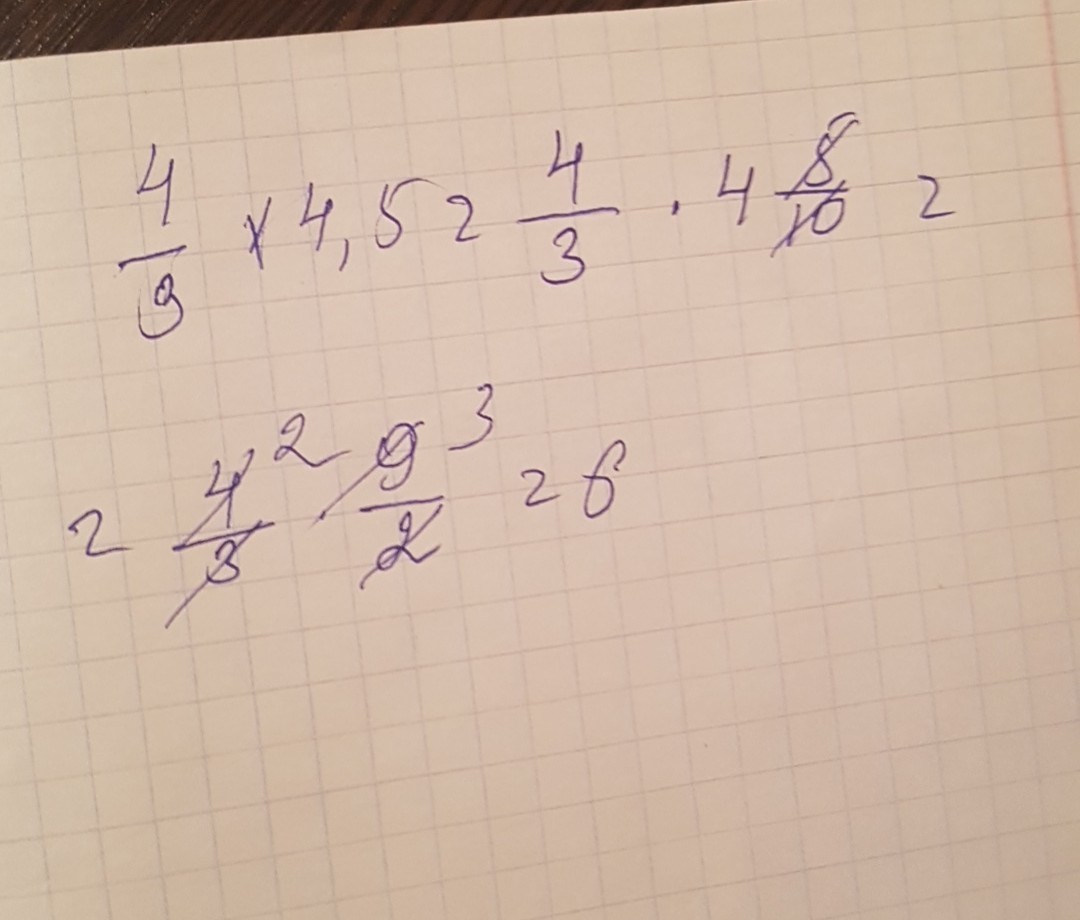 4/3 × 4,5 = 4/3 · 4 5/10 =
= 4/3 2 · 9/2 3 = 6